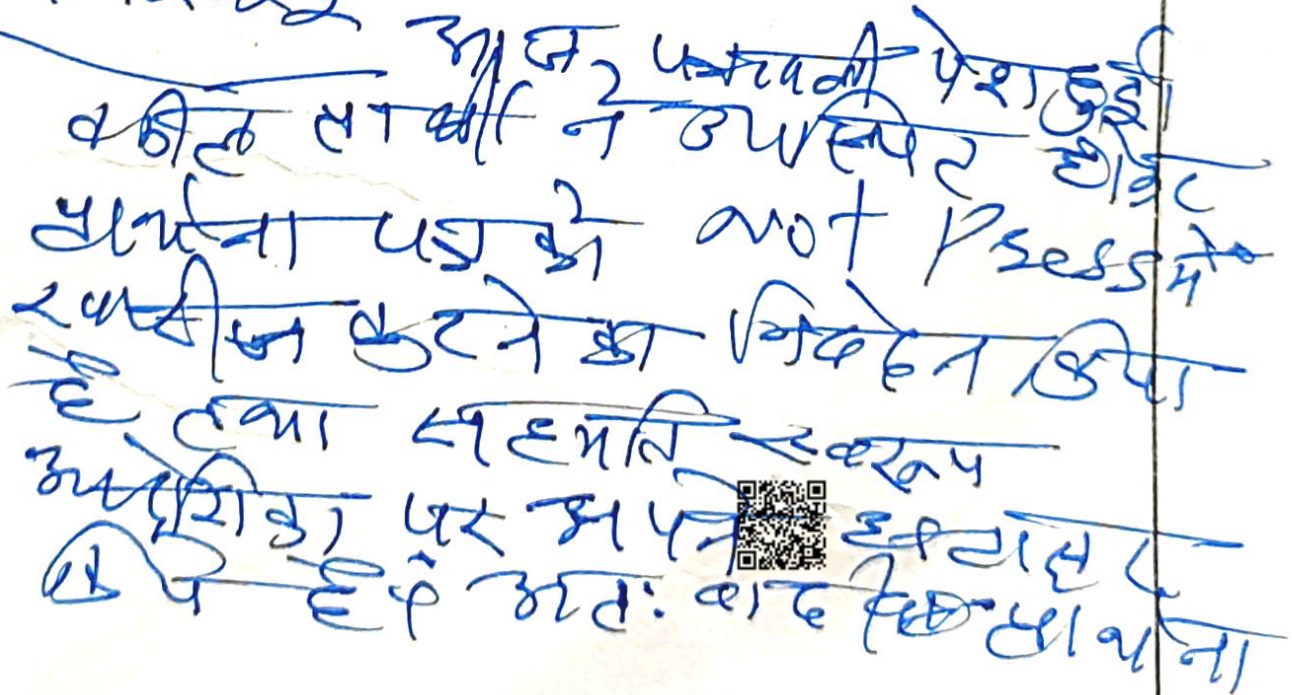 आज पत्रावली पेश हुई।
वकील प्रार्थी ने उपस्थित होकर
प्रार्थना पत्र को Not Press में
खारीज करने का निवेदन किया
है तथा सहमति स्वरूप
आदेशिका पर अपने हस्ताक्षर
किये हैं। अतः वाद प्रार्थना